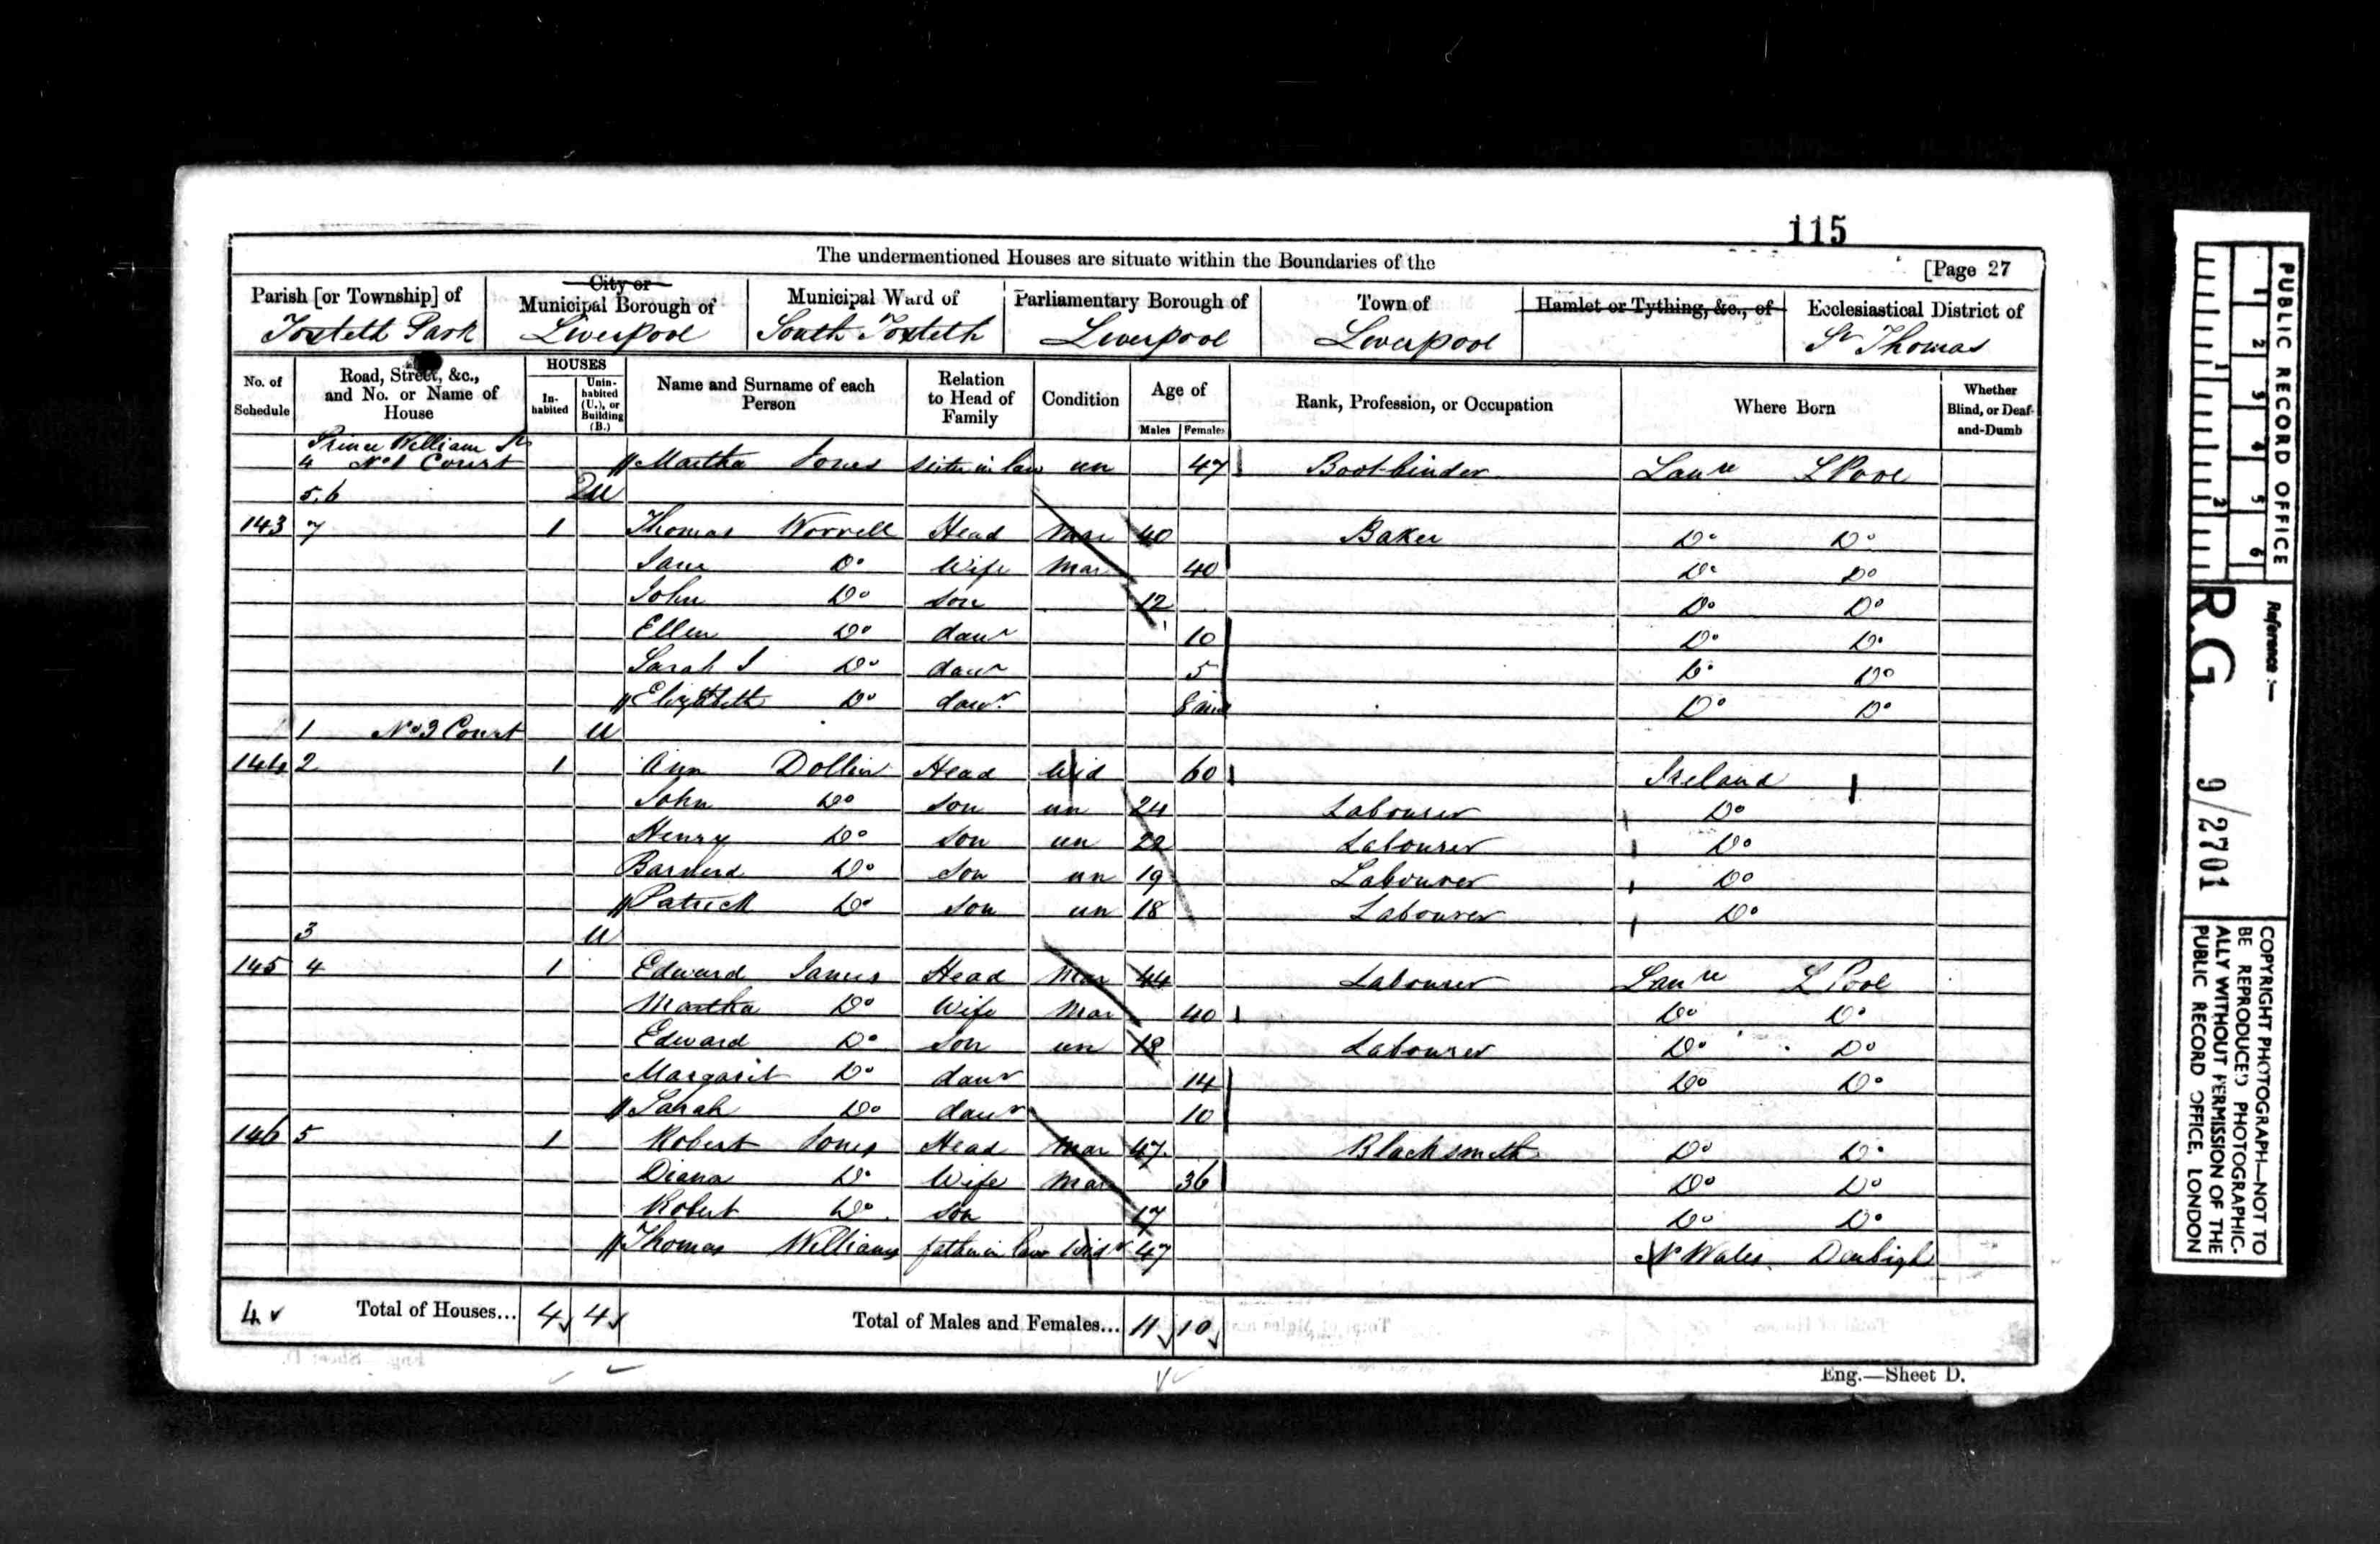 115
The undermentioned Houses are situate within the Boundaries of the
[Page 27
Parish [or Township] of Toxteth Park
City or Municipal Borough of Liverpool
Municipal Ward of South Toxteth
Parliamentary Borough of Liverpool
Town of Liverpool
Hamlet or Tything, &c., of
Ecclesiastical District of St Thomas
No. of Schedule
Road, Street, &c., and No. or Name of House
HOUSES
In-habited
Unin-habited (U.), or Building (B.)
Name and Surname of each Person
Relation to Head of Family
Condition
Age of
Males
Females
Rank, Profession, or Occupation
Where Born
Whether Blind, or Deaf-and-Dumb
Prince William St
4 No 1 Court Martha Jones sister in law un 47 Boot-binder Lanre LPool
5.6 2U
143 7 1 Thomas Worrell Head Mar 40 Baker Do Do
Jane Do Wife Mar 40 Do Do
John Do Son 12 Do Do
Ellen Do daur 10 Do Do
Sarah J Do daur 5 Do Do
Elizabeth Do daur 8 mo Do Do
1 No 3 Court U
144 2 1 Ann Dollin Head Wid 60 Ireland
John Do Son un 24 Labourer Do
Henry Do Son un 22 Labourer Do
Barnerd Do Son un 19 Labourer Do
Patrick Do Son un 18 Labourer Do
3 U
145 4 1 Edward James Head Mar 44 Labourer Lanre LPool
Martha Do Wife Mar 40 Do Do
Edward Do Son un 18 Labourer Do Do
Margarit Do daur 14 Do Do
Sarah Do daur 10
146 5 1 Robert Jones Head Mar 47 Blacksmith Do Do
Diana Do Wife Mar 36 Do Do
Robert Do Son 17 Do Do
Thomas Williams father in law Widr 47 N Wales Denbigh
4 Total of Houses... 4 4 Total of Males and Females... 11 10
Eng.—Sheet D.
PUBLIC RECORD OFFICE
1 2 3 4 5 6
1 2
Reference:—
R.G. 9/2701
COPYRIGHT PHOTOGRAPH—NOT TO
BE REPRODUCED PHOTOGRAPHIC-
ALLY WITHOUT PERMISSION OF THE
PUBLIC RECORD OFFICE, LONDON